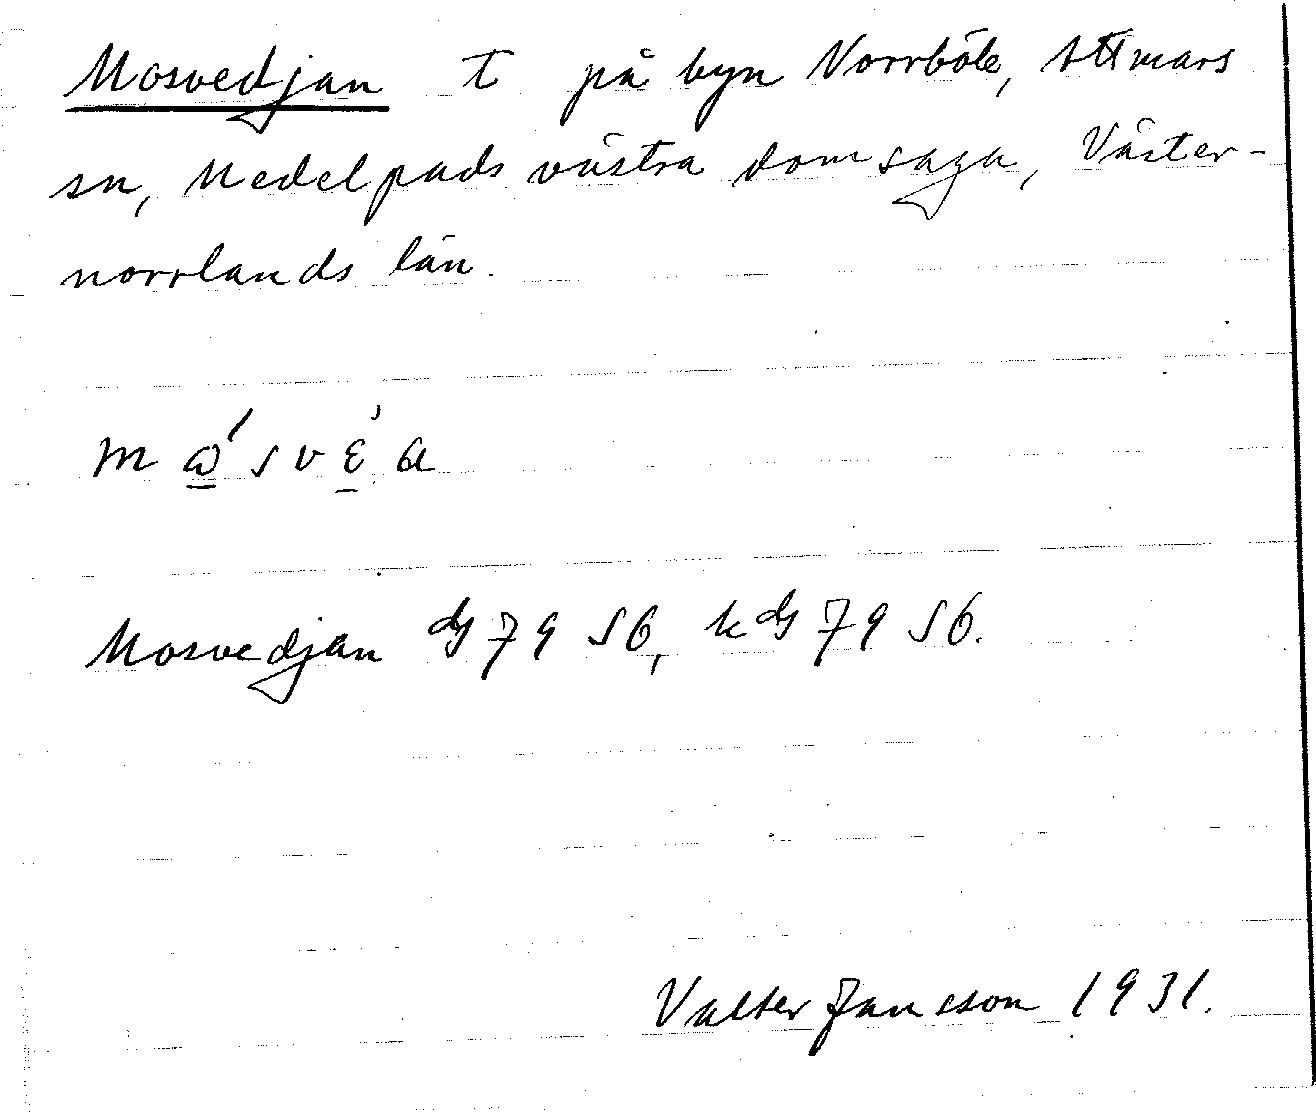 Mosvedjan t på byn Norrböle, Attmars
sn, Medelpads västra domsaga, Väster-
norrlands län.
Mosvedjan dg 79 S6, k dg 79 S6.
Valter Jansson 1931.